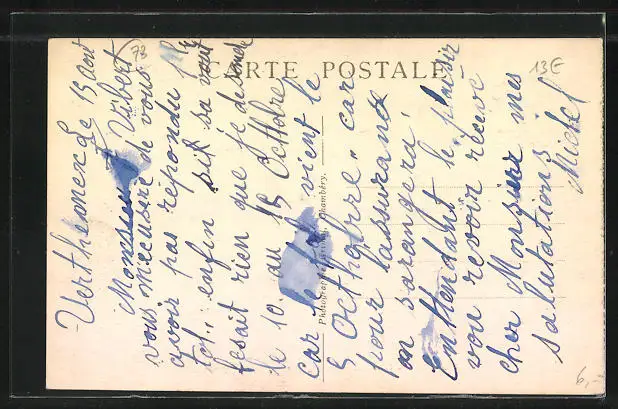 CARTE POSTALE
73
13E
Verthemex Le 15 aout
Monsieur Vibert
vous m'ecusere de vous
avoir pas répondu plu
tot enfin sit sa vout
fesait rien que je desende
le 10 au 15 Octtobre
car le vient le
5 Octtobre car
pour lassurance
on sarangera
En Attendant le plaisir
vou revoir receve
cher Monsieur mes
salutations
Michel
Chambéry.
6,-